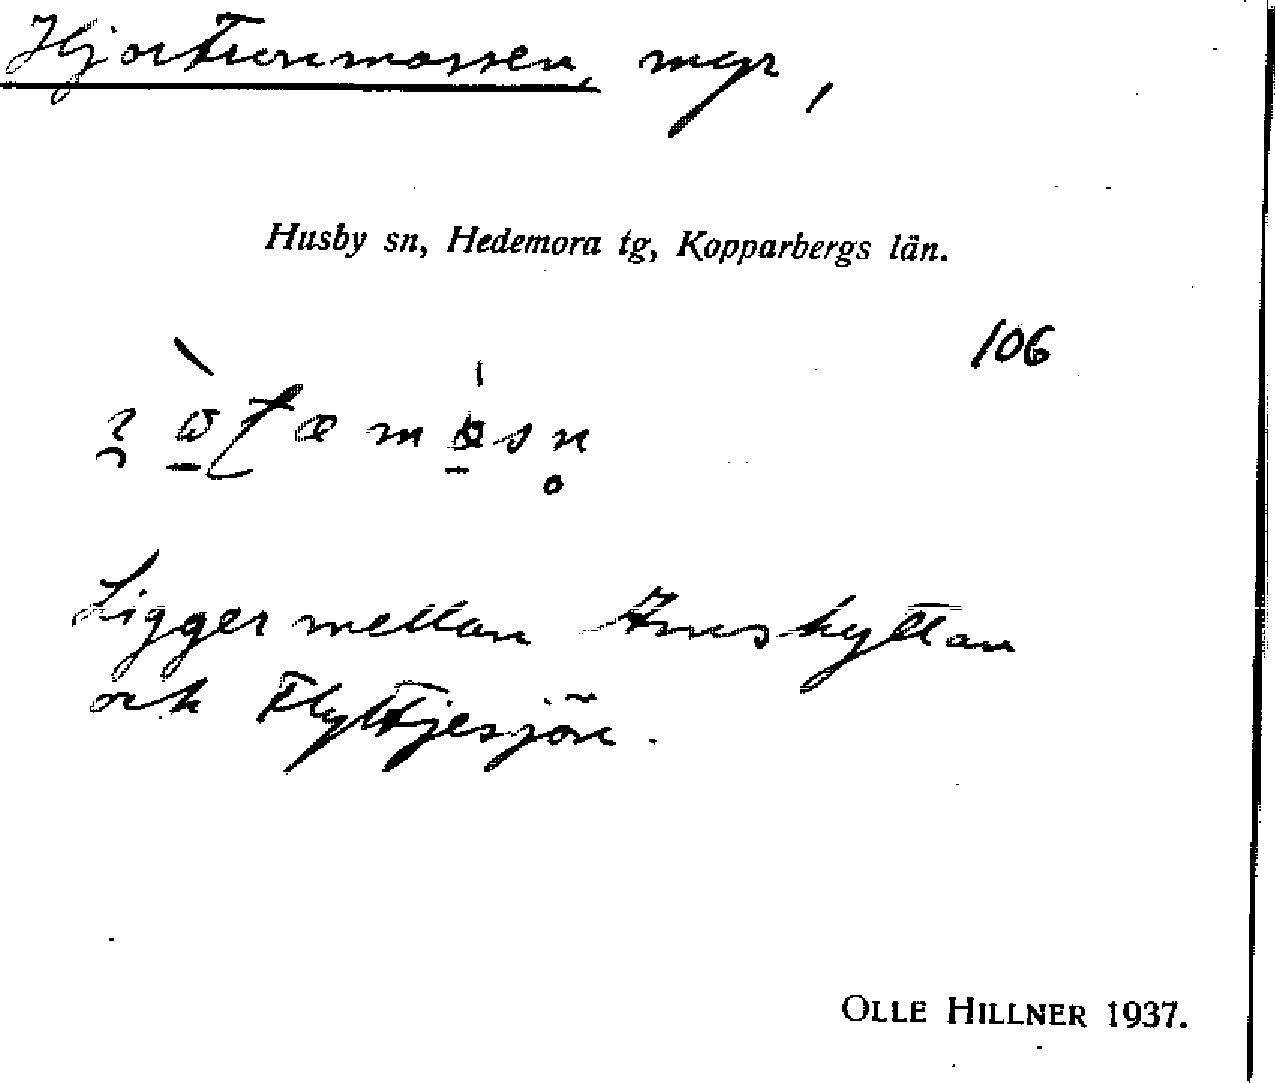 Hjortturmossen, mgr,
Husby sn, Hedemora tg, Kopparbergs län.
106
Ligger mellan hyttan
och Flyttjesjön.
OLLE HILLNER 1937.